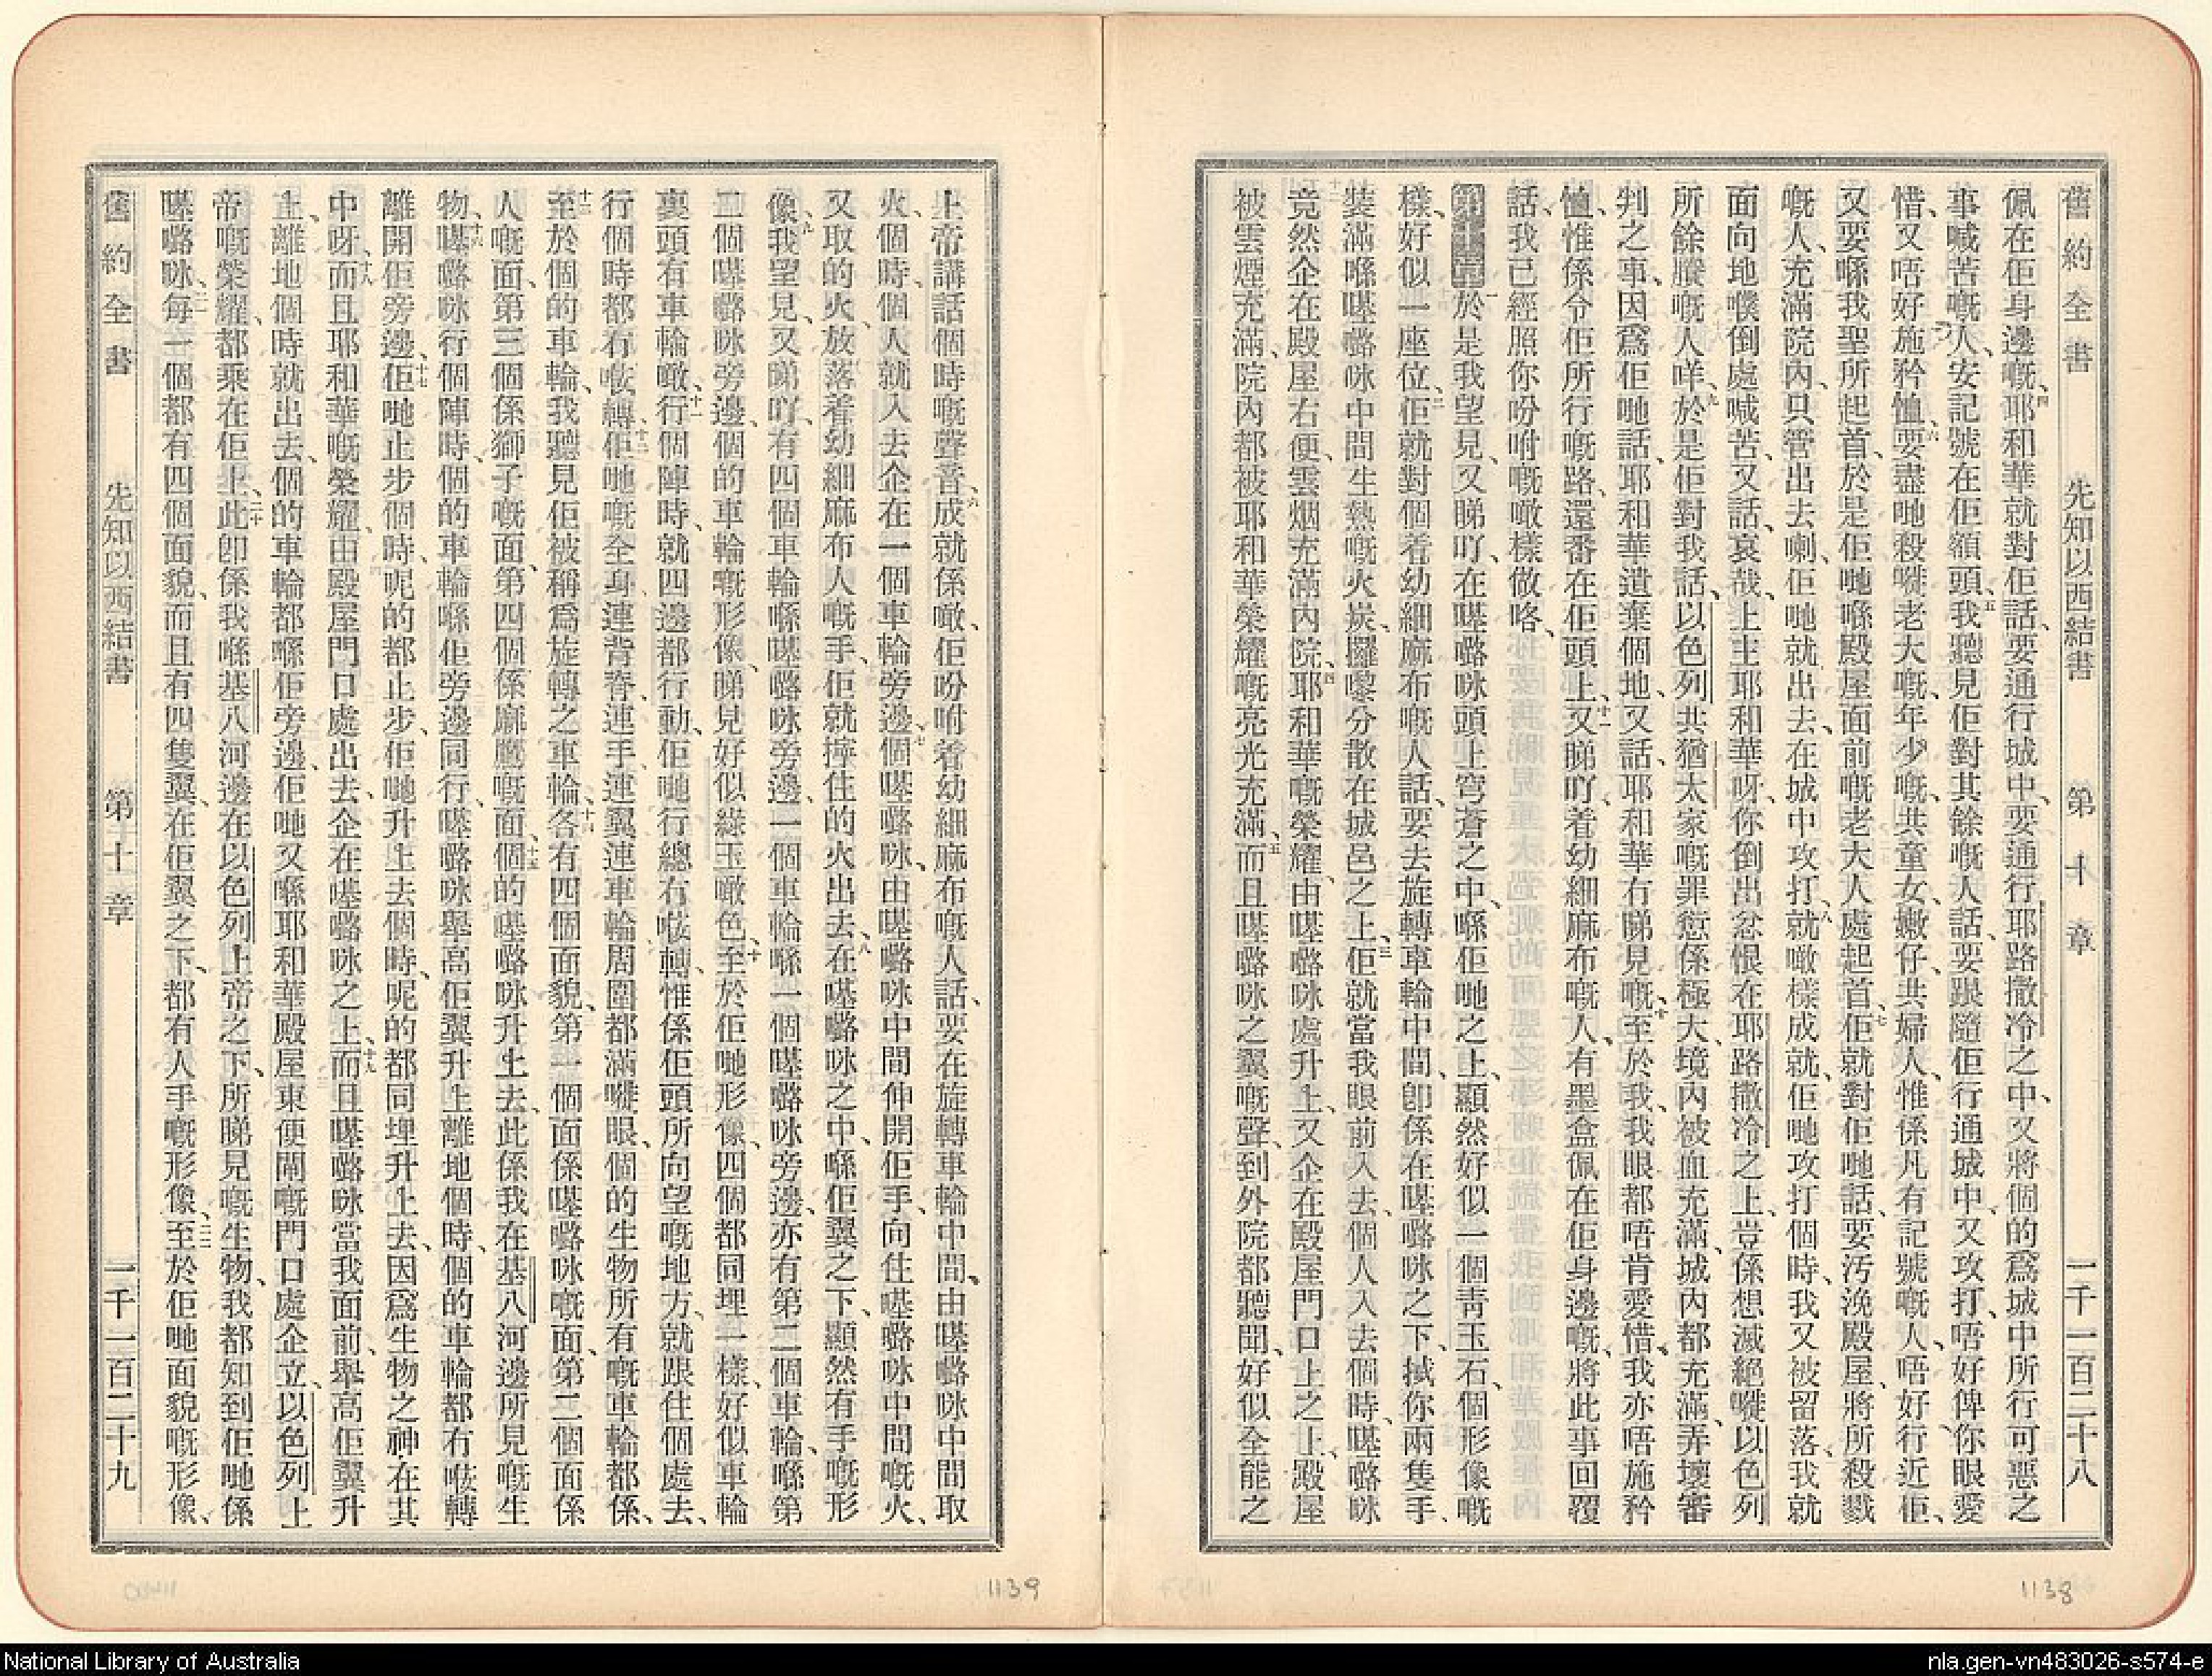 舊約全書 先知以西結書 第十章 一千一百二十八
佩在佢身邊嘅、四耶和華就對佢話、要通行城中、要通行耶路撒冷之中、又將個的爲城中所行可惡之
事喊苦嘅人、安記號在佢額頭、五我聽見佢對其餘嘅人話、要跟隨佢行通城中、又攻打、唔好俾你眼愛
惜、又唔好施矜恤、六要盡哋殺嘥老大嘅、年少嘅、共童女、嫩仔、共婦人、惟係凡有記號嘅人、唔好行近佢、
又要喺我聖所起首、於是佢哋喺殿屋面前嘅老大人處起首、七佢就對佢哋話、要汚浼殿屋、將所殺戮
嘅人、充滿院內、只管出去喇、佢哋就出去、在城中攻打、八就噉樣成就、佢哋攻打個時、我又被留落、我就
面向地噗倒處喊苦、又話、哀哉、上主耶和華呀、你倒出忿恨在耶路撒冷之上、豈係想滅絕嘥以色列
所餘賸嘅人咩、九於是佢對我話、以色列共猶太家嘅罪愆係極大、境內被血充滿、城內都充滿、弄壞審
判之事、因爲佢哋話、耶和華遺棄個地、又話、耶和華冇睇見嘅、十至於我、我眼都唔肯愛惜、我亦唔施矜
恤、惟係令佢所行嘅路、還番在佢頭上、十一又睇吓、着幼細麻布嘅人、有墨盒佩在佢身邊嘅、將此事回覆
話、我已經照你吩咐嘅噉樣做咯、
第十章一於是我望見、又睇吓、在𠼻嚧㕲頭上穹蒼之中、喺佢哋之上、顯然好似一個靑玉石、個形像嘅
樣、好似一座位、二佢就對個着幼細麻布嘅人話、要去旋轉車輪中間、卽係在𠼻嚧㕲之下、㧅你兩隻手、
裝滿喺𠼻嚧㕲中間生熱嘅火炭、攞嚟分散在城邑之上、三佢就當我眼前入去、個人入去個時、𠼻嚧㕲
竟然企在殿屋右便、雲烟充滿內院、四耶和華嘅榮耀、由𠼻嚧㕲處升上、又企在殿屋門口上之上、殿屋
被雲煙充滿、院內都被耶和華榮耀嘅亮光充滿、五而且𠼻嚧㕲之翼嘅聲、到外院都聽聞、好似全能之
上帝講話個時嘅聲音、六成就係噉、佢吩咐着幼細麻布嘅人話、要在旋轉車輪中間、由𠼻嚧㕲中間取
火、個時、個人就入去企在一個車輪旁邊、七個𠼻嚧㕲、由𠼻嚧㕲中間伸開佢手、向住𠼻嚧㕲中間嘅火、
又取的火、放落着幼細麻布人嘅手、佢就揸住的火出去、八在𠼻嚧㕲之中、喺佢翼之下、顯然有手嘅形
像、九我望見、又睇吖、有四個車輪喺𠼻嚧㕲旁邊、一個車輪喺一個𠼻嚧㕲旁邊、亦有第二個車輪、喺第
二個𠼻嚧㕲旁邊、個的車輪嘅形像、睇見好似綠玉噉色、十至於佢哋形像、四個都同埋一樣、好似車輪
裏頭有車輪噉、十一行個陣時、就四邊都行動、佢哋行總冇𠺘轉、惟係佢頭所向望嘅地方、就跟住個處去、
行個時都冇𠺘轉、十二佢哋嘅全身、連背脊、連手、連翼、連車輪、周圍都滿嘥眼、個的生物所有嘅車輪都係、
十三至於個的車輪、我聽見佢被稱爲旋轉之車輪、十四各有四個面貌、第一個面係𠼻嚧㕲嘅面、第二個面係
人嘅面、第三個係獅子嘅面、第四個係麻鷹嘅面、十五個的𠼻嚧㕲升上去、此係我在基八河邊所見嘅生
物、十六𠼻嚧㕲行個陣時、個的車輪喺佢旁邊同行、𠼻嚧㕲舉高佢翼升上離地個時、個的車輪都冇𠺘轉
離開佢旁邊、十七佢哋止步個時、呢的都止步、佢哋升上去個時、呢的都同埋升上去、因爲生物之神在其
中呀、十八而且耶和華嘅榮耀、由殿屋門口處出去、企在𠼻嚧㕲之上、十九而且𠼻嚧㕲當我面前、舉高佢翼升
上、離地個時就出去、個的車輪都喺佢旁邊、佢哋又喺耶和華殿屋東便閘嘅門口處企立、以色列上
帝嘅榮耀、都乘在佢上、二十此卽係我喺基八河邊在以色列上帝之下、所睇見嘅生物、我都知到佢哋係
𠼻嚧㕲、二一每一個都有四個面貌、而且有四隻翼、在佢翼之下、都有人手嘅形像、二二至於佢哋面貌嘅形像、
舊約全書 先知以西結書 第十章 一千一百二十九
1139
1138
National Library of Australia
nla.gen-vn483026-s574-e